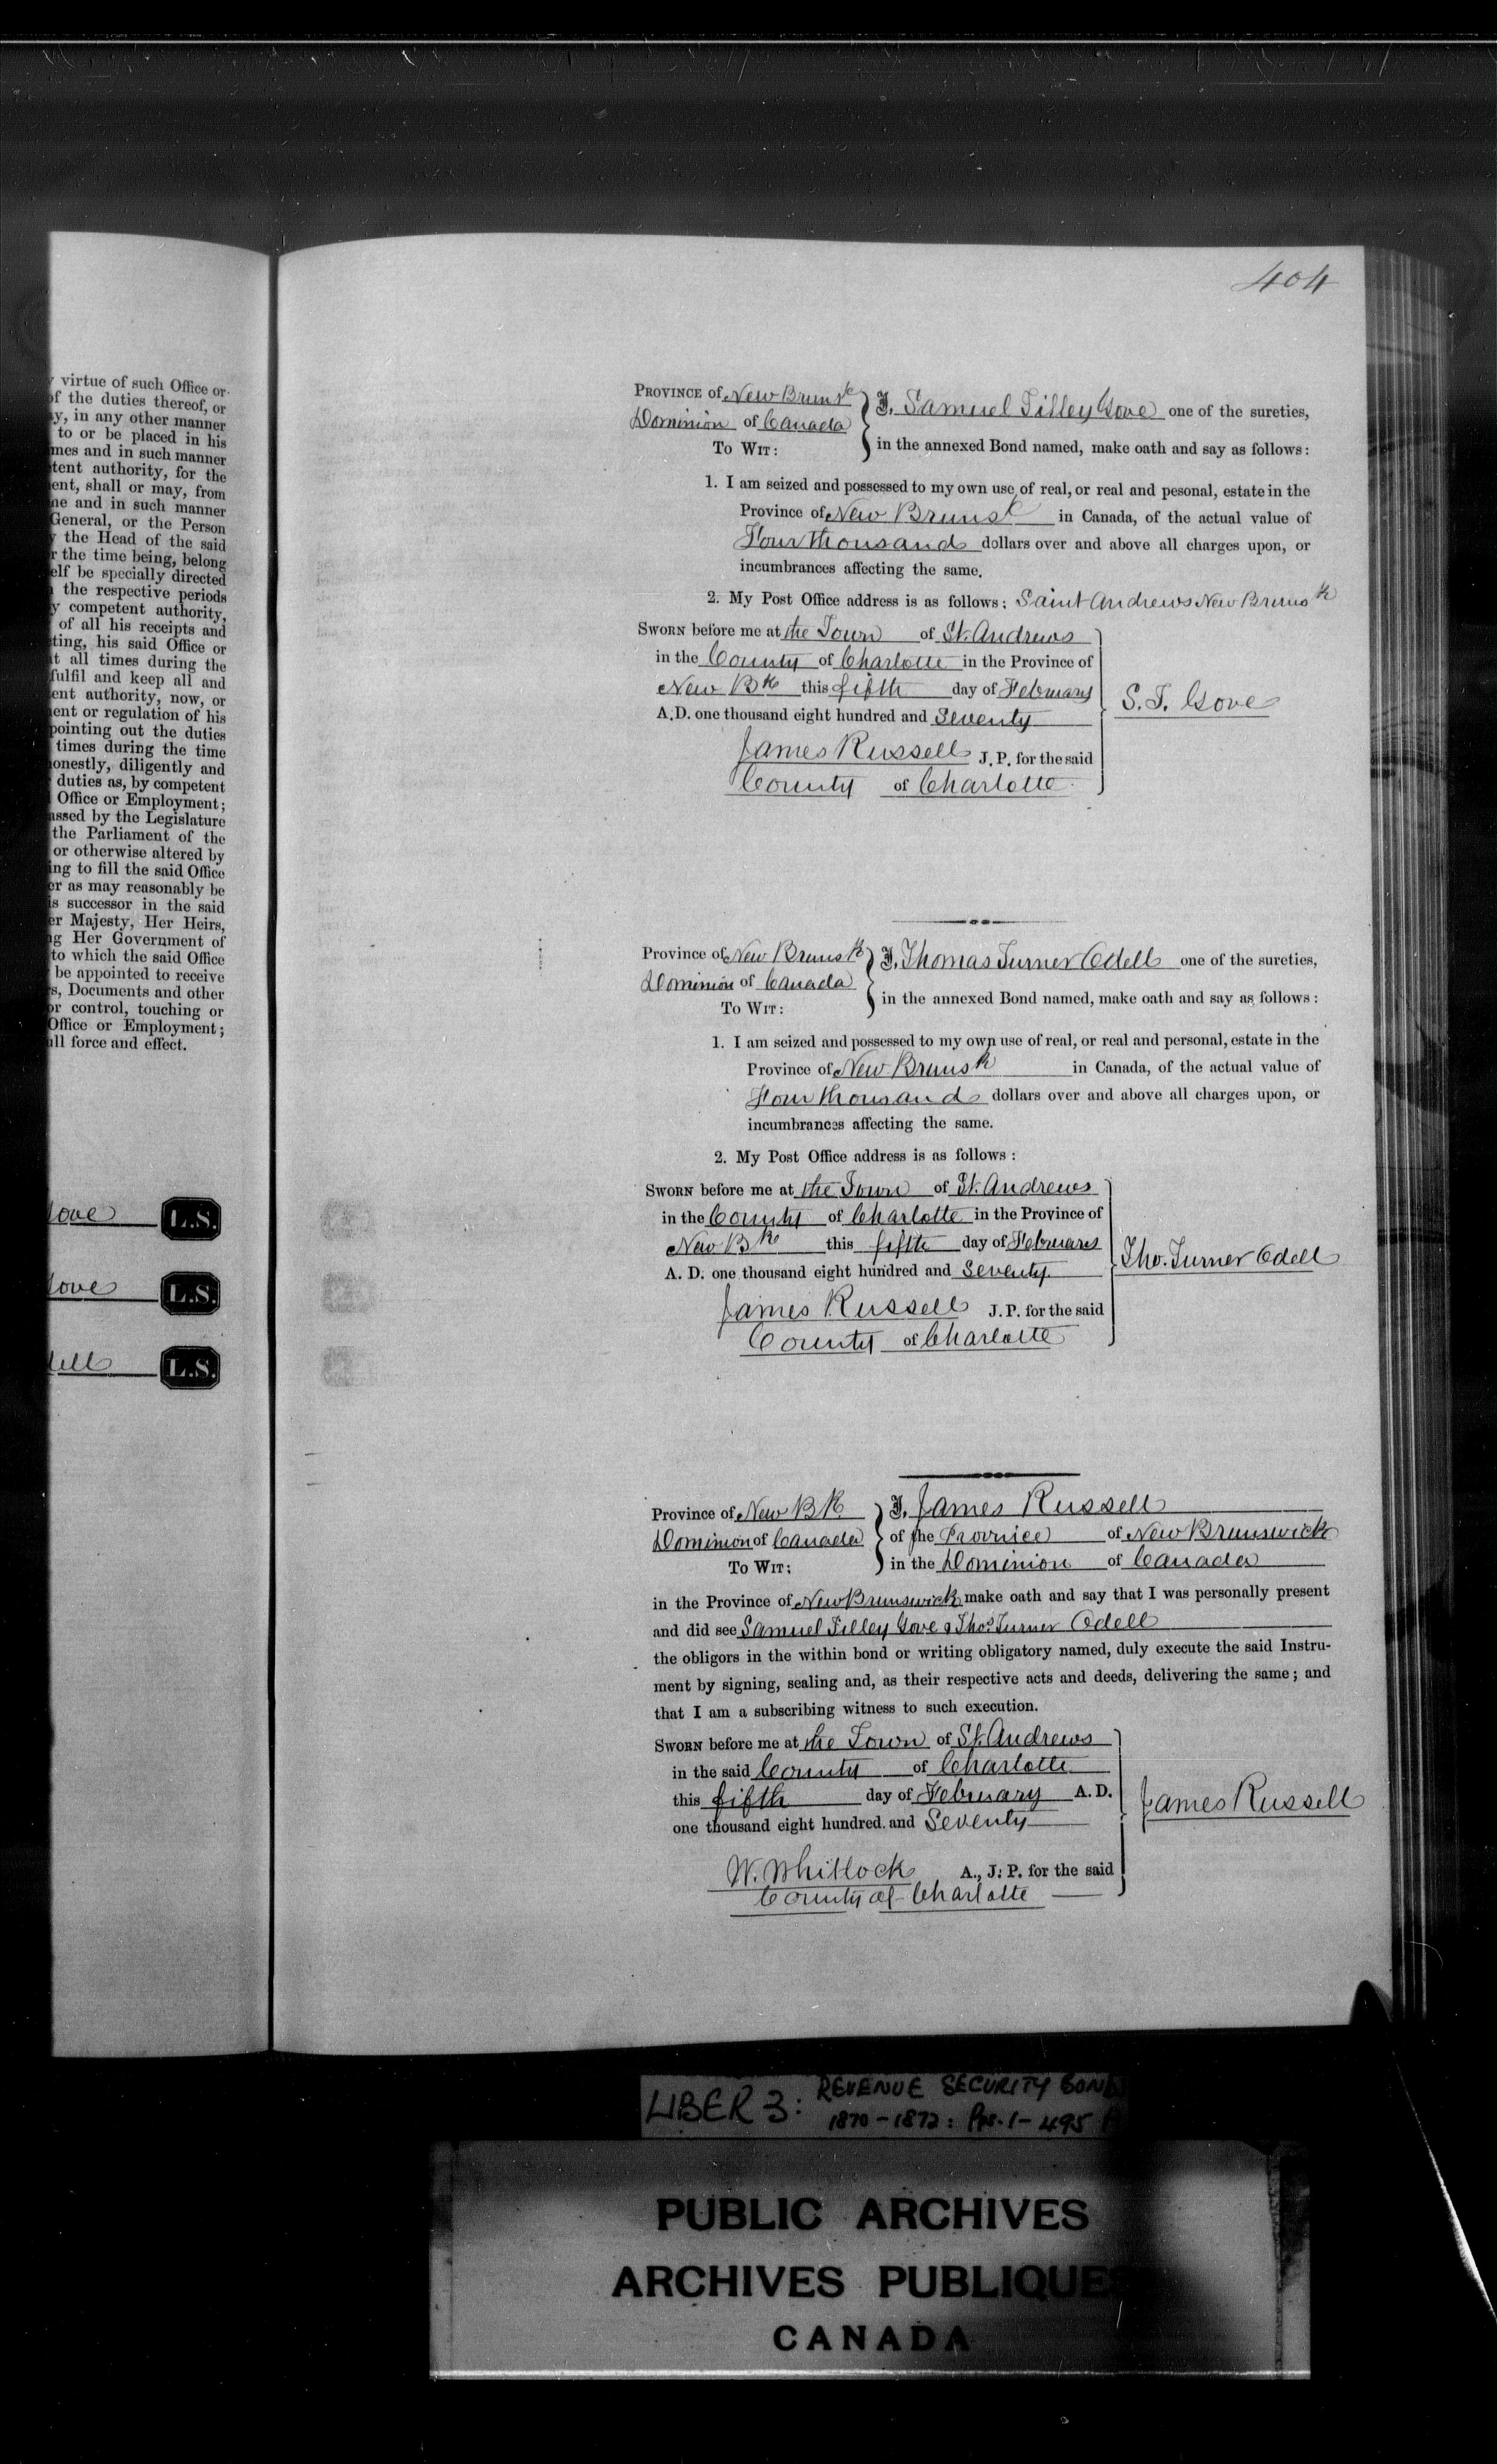 virtue of such Office or
of the duties thereof, or
in any other manner
to or be placed in his
and in such manner
authority, for the
shall or may, from
and in such manner
General, or the Person
the Head of the said
the time being, belong
be specially directed
the respective periods
competent authority,
of all his receipts and
his said Office or
at all times during the
fulfil and keep all and
authority, now, or
or regulation of his
pointing out the duties
times during the time
honestly, diligently and
duties as, by competent
Office or Employment;
passed by the Legislature
the Parliament of the
or otherwise altered by
to fill the said Office
as may reasonably be
successor in the said
Majesty, Her Heirs,
Her Government of
to which the said Office
be appointed to receive
Documents and other
or control, touching or
Office or Employment;
all force and effect.
L.S.
L.S.
L.S.
404
PROVINCE of New Brunsk } I, Samuel Tilley Gove one of the sureties,
Dominion of Canada
To WIT: in the annexed Bond named, make oath and say as follows:
1. I am seized and possessed to my own use of real, or real and pesonal, estate in the
Province of New Brunsk in Canada, of the actual value of
Four thousand dollars over and above all charges upon, or
incumbrances affecting the same.
2. My Post Office address is as follows: Saint Andrews New Brunsk
SWORN before me at the Town of St. Andrews
in the County of Charlotte in the Province of
New Bk this fifth day of February
S. T. Gove
A.D. one thousand eight hundred and Seventy
James Russell J. P. for the said
County of Charlotte
Province of New Brunsk } I, Thomas Turner Odell one of the sureties,
Dominion of Canada
To WIT: in the annexed Bond named, make oath and say as follows:
1. I am seized and possessed to my own use of real, or real and personal, estate in the
Province of New Brunsk in Canada, of the actual value of
Four thousand dollars over and above all charges upon, or
incumbrances affecting the same.
2. My Post Office address is as follows:
SWORN before me at the Town of St. Andrews
in the County of Charlotte in the Province of
New Bk this fifth day of February
Tho. Turner Odell
A. D. one thousand eight hundred and Seventy
James Russell J. P. for the said
County of Charlotte
Province of New Bk } I, James Russell
Dominion of Canada of the Province of New Brunswick
To WIT: in the Dominion of Canada
in the Province of New Brunswick make oath and say that I was personally present
and did see Samuel Tilley Gove & Thos. Turner Odell
the obligors in the within bond or writing obligatory named, duly execute the said Instru-
ment by signing, sealing and, as their respective acts and deeds, delivering the same; and
that I am a subscribing witness to such execution.
SWORN before me at the Town of St. Andrews
in the said County of Charlotte
this fifth day of February A. D.
James Russell
one thousand eight hundred. and Seventy
W. Whitlock A., J. P. for the said
County of Charlotte
LIBER 3: REVENUE SECURITY BOND
1870-1872: Pps. 1-495
PUBLIC ARCHIVES
ARCHIVES PUBLIQUES
CANADA